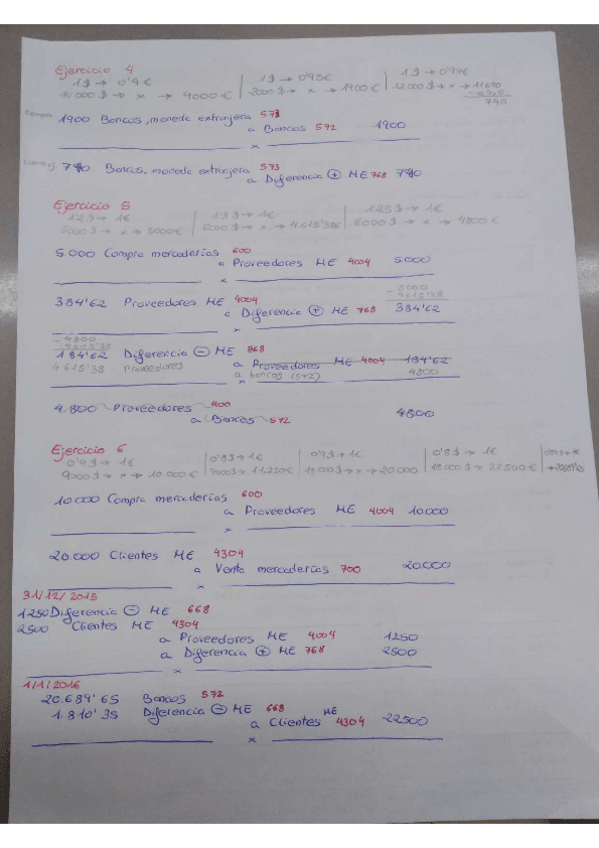 Ejercicio 4
1$ → 0'9€ | 1$ → 0'95€ | 1$ → 0'97€
10000$ → x → 9000€ | 2000$ → x → 1900€ | 12000$ → x → 11690
790
Compra
1900 Bancos, moneda extranjera 573
a Bancos 572 1900
x
790 Bancos, moneda extranjera 573
a Diferencia + ME 768 790
Ejercicio 5
1'2$ → 1€ | 1'3$ → 1€ | 1'25$ → 1€
6000$ → x → 5000€ | 6000$ → x → 4.615'38€ | 6000$ → x → 4800€
5.000 Compra mercaderías 600
a Proveedores ME 4004 5.000
x
- 5000
4615'38
384'62 Proveedores ME 4004
a Diferencia + ME 768 384'62
x
- 4800
4615'38
184'62 Diferencia - ME 668
a Proveedores ME 4004 184'62
4615'38 Proveedores
a bancos (572) 4800
x
4.800 Proveedores 400
a Bancos 572 4800
Ejercicio 6
0'9$ → 1€ | 0'8$ → 1€ | 0'9$ → 1€ | 0'8$ → 1€
9000$ → x → 10.000€ | 9000$ → 11.250€ | 18.000$ → x → 20.000 | 18.000$ → 22500€
10.000 Compra mercaderías 600
a Proveedores ME 4004 10.000
x
20.000 Clientes ME 4304
a Venta mercaderías 700 20.000
x
31/12/2015
1250 Diferencia - ME 668
2500 Clientes ME 4304
a Proveedores ME 4004 1250
a Diferencia + ME 768 2500
x
1/1/2016
20.689'65 Bancos 572
1.810'35 Diferencia - ME 668
a Clientes ME 4304 22500
x